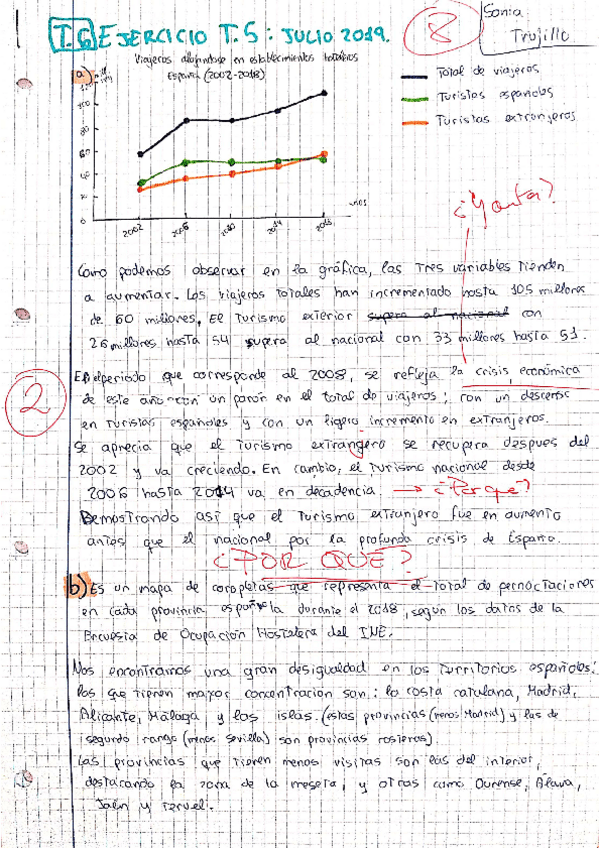 T.6 EJERCICIO T.5: JULIO 2019.
8
Sonia
Trujillo
Viajeros alojandose en establecimientos hoteleros
España (2002-2018)
a)
Total de viajeros
Turistas españoles
Turistas extranjeros
100
80
60
40
20
0
2002
2006
2010
2014
2018
años
¿Y antes?
Como podemos observar en la gráfica, las tres variables tienden
a aumentar. Los viajeros totales han incrementado hasta 105 millones
de 60 millones. El turismo exterior supera al nacional con
26 millones hasta 54 supera al nacional con 33 millones hasta 51.
2
El periodo que corresponde al 2008, se refleja la crisis económica
de este año con un parón en el total de viajeros; con un descenso
en turistas españoles y con un ligero incremento en extranjeros.
Se aprecia que el turismo extrangero se recupera despues del
2002 y va creciendo. En cambio, el turismo nacional desde
2006 hasta 2014 va en decadencia. → ¿Por qué?
Demostrando así que el turismo extranjero fue en aumento
antes que el nacional por la profunda crisis de España.
¿POR QUÉ?
b) Es un mapa de coropletas que representa el total de pernoctaciones
en cada provincia española durante el 2018, según los datos de la
Encuesta de Ocupación Hostelera del INE.
Nos encontramos una gran desigualdad en los territorios españoles:
los que tienen mayor concentración son: la costa catalana, Madrid,
Alicante, Málaga y las islas. (estas provincias (menos Madrid) y las de
segundo rango (menos Sevilla) son provincias costeras)
Las provincias que tienen menos visitas son las del interior,
destacando la zona de la meseta, y otras como Ourense, Álava,
Jaén y Teruel.